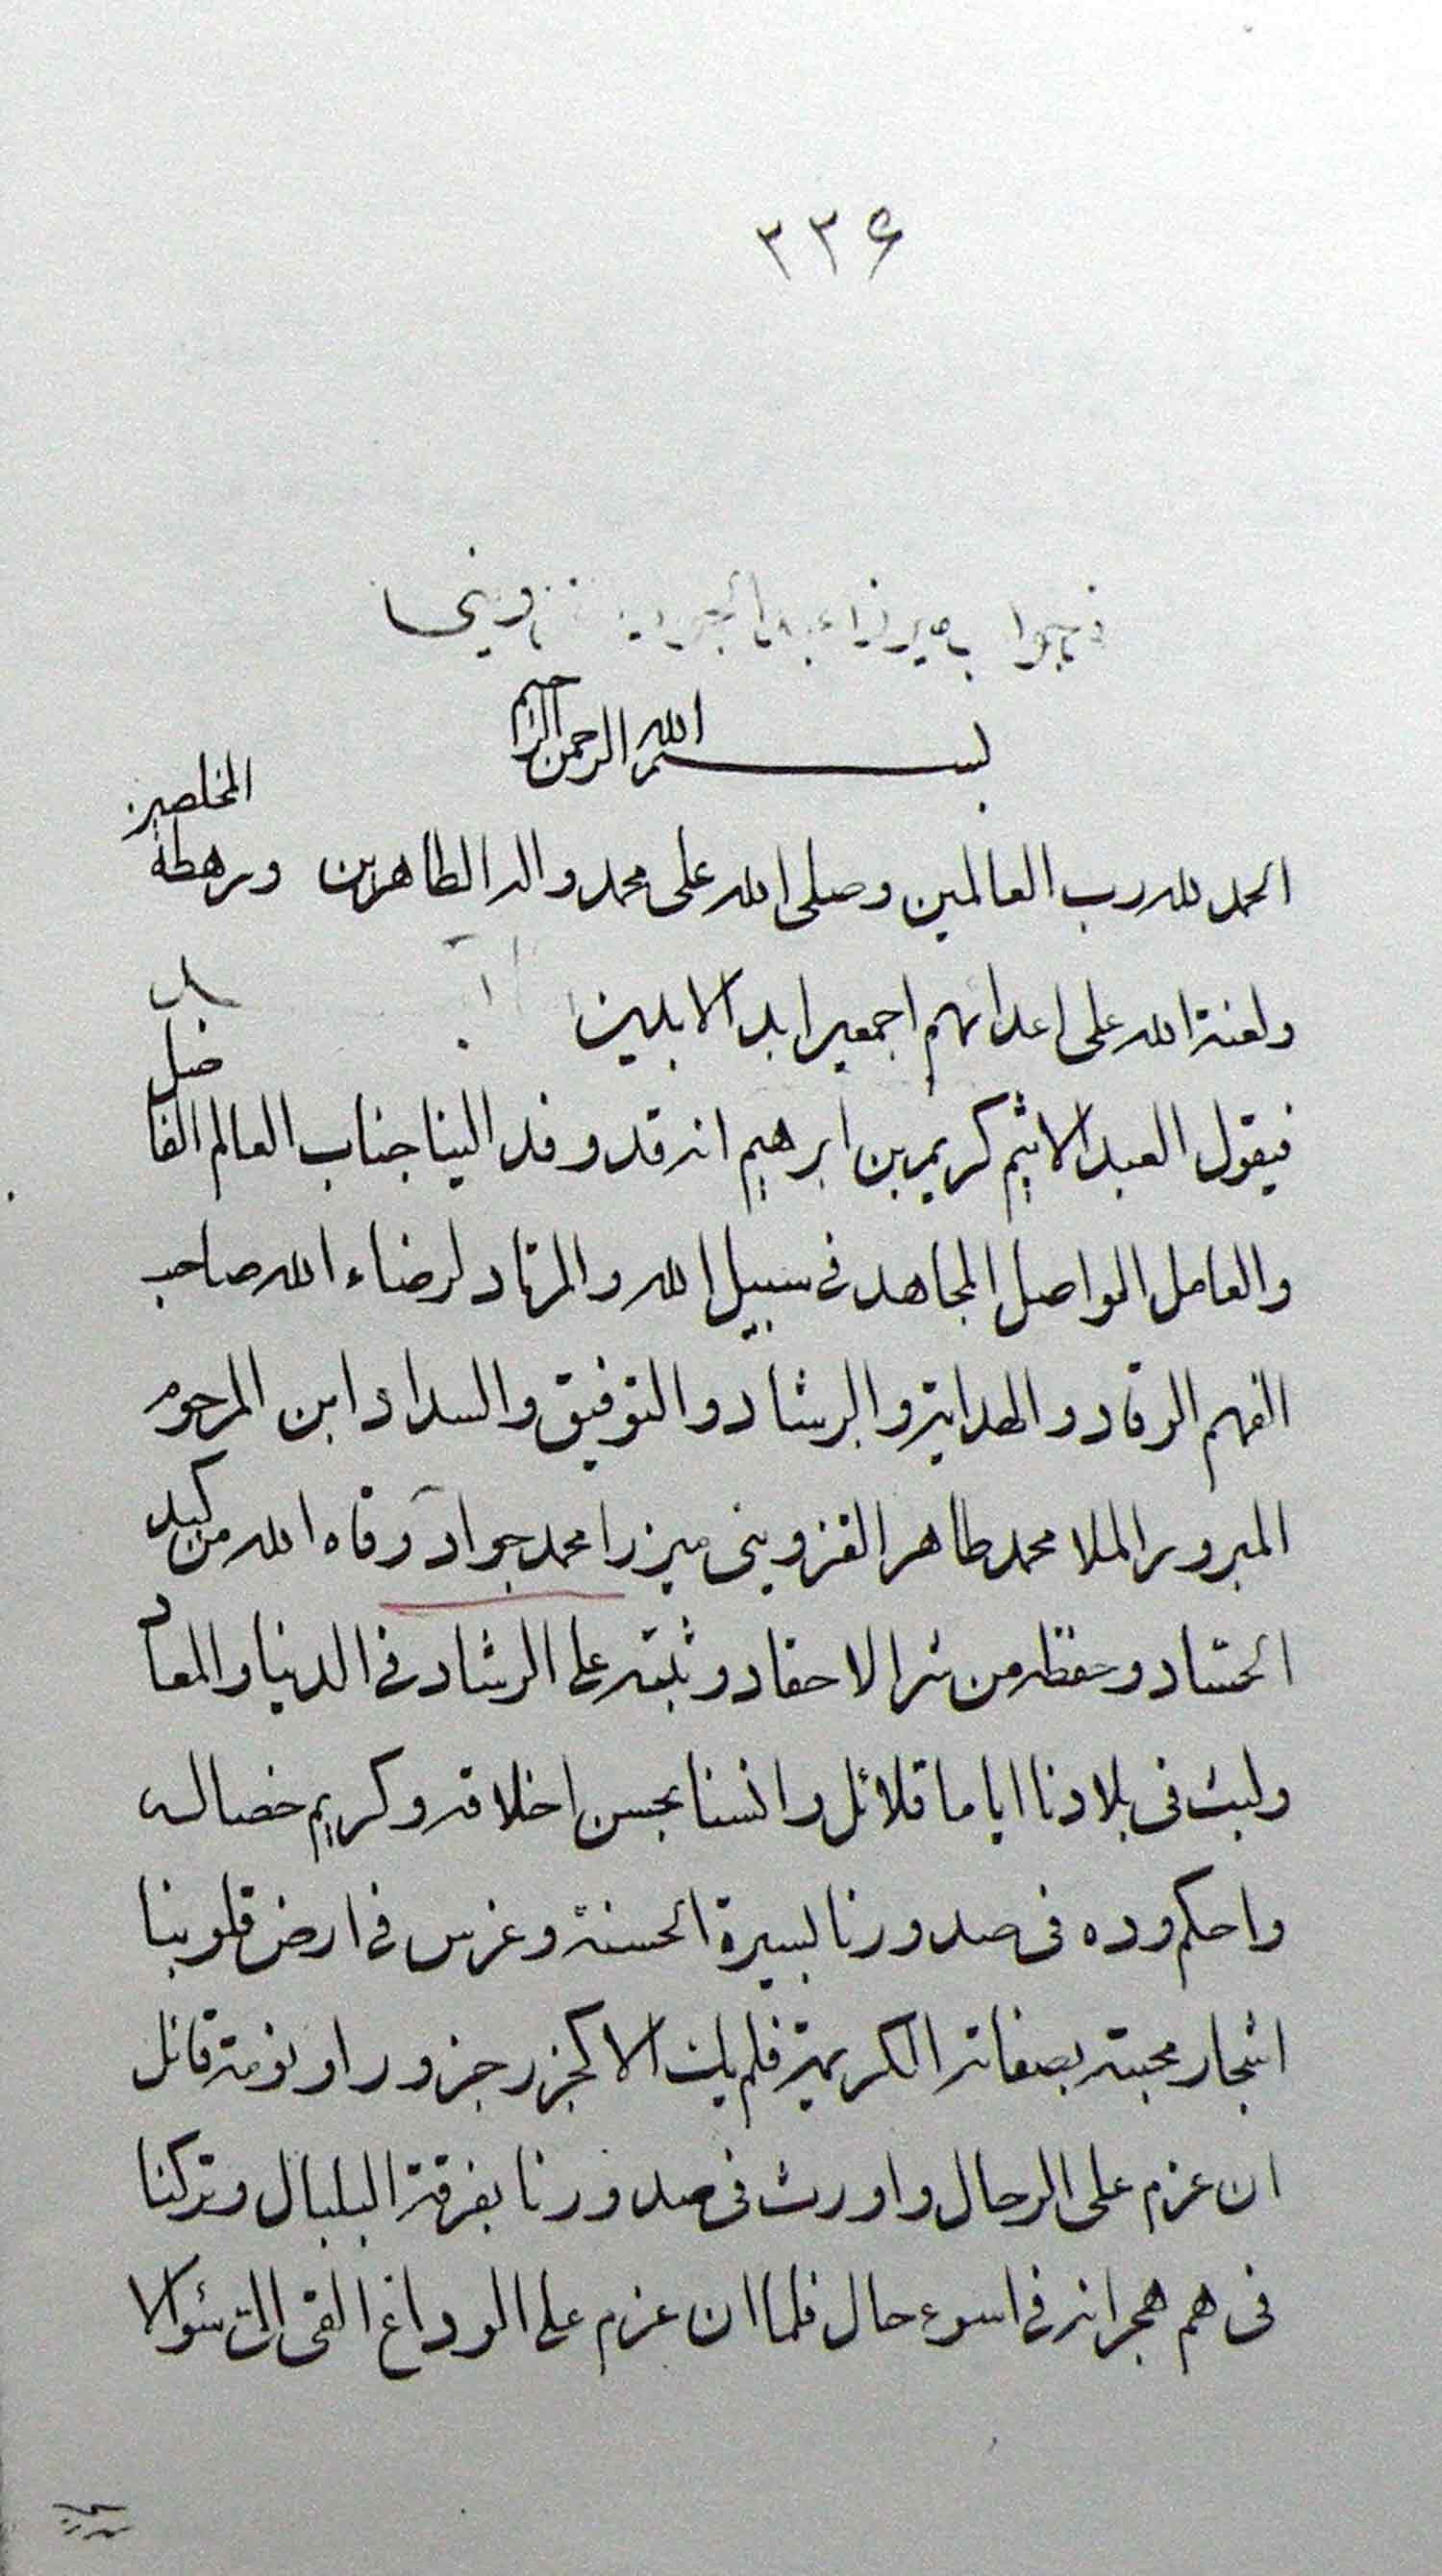 ۳۳۶
بسم الله الرحمن الرحیم
الحمد لله رب العالمین و صلی الله علی محمد و اله الطاهرین و رهطه المخلصین
و لعنة الله علی اعدائهم اجمعین ابد الابدین
فیقول العبد الاثیم کریم بن ابرهیم انه قد وفد الینا جناب العالم الفاضل
والعامل الواصل المجاهد فی سبیل الله والمرتاد لرضاء الله صاحب
الفهم الوقاد و الهدایة و الرشاد و التوفیق و السداد ابن المرحوم
المبرور الملا محمد طاهر القزوینی میرزا محمد جواد وقاه الله من کید
الحساد و حفظه من شر الاحقاد و ثبته علی الرشاد فی الدنیا و المعاد
ولبث فی بلادنا ایاما قلائل و انسنا بحسن اخلاقه و کریم خصاله
و احکم وده فی صدورنا بسیرة الحسنة و غرس فی ارض قلوبنا
اشجار محبته بصفاته الکریمة فلم یك الا کجزر جزور او نومة قائل
ان عزم علی الرحال و اورث فی صدورنا بفرقة البلبال و ترکنا
فی هم هجرانه فی اسوء حال فلما ان عزم علی الوداع القی الی سئوالا